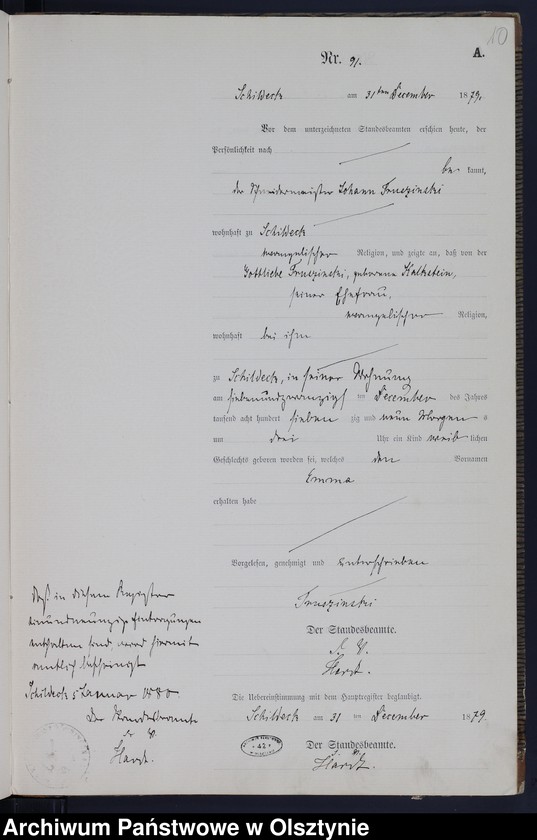 10
A.
Nr. 91.
Schildeck am 31ten December 1879.
Vor dem unterzeichneten Standesbeamten erschien heute, der
Persönlichkeit nach
be kannt,
der Schneidermeister Johann
wohnhaft zu Schildeck
evangelischer Religion, und zeigte an, daß von der
Gottliebe geborene Kalkstein,
seiner Ehefrau,
evangelischer Religion,
wohnhaft bei ihm
zu Schildeck, in seiner Wohnung
am siebenundzwanzigst im December des Jahres
tausend acht hundert sieben zig und neun Morgen s
um drei Uhr ein Kind weib lichen
Geschlechts geboren worden sei, welches den Vornamen
Emma
erhalten habe
Vorgelesen, genehmigt und unterschrieben
Der Standesbeamte.
Hardt.
Die Uebereinstimmung mit dem Hauptregister beglaubigt.
Schildeck am 31 im December 1879.
Der Standesbeamte.
Hardt.
Daß in diesem Register
einundneunzig Eintragungen
enthalten sind, wird hiermit
amtlich bescheinigt
Schildeck 5 Januar 1880
Der Standesbeamte
Hardt.
42
Archiwum Państwowe w Olsztynie